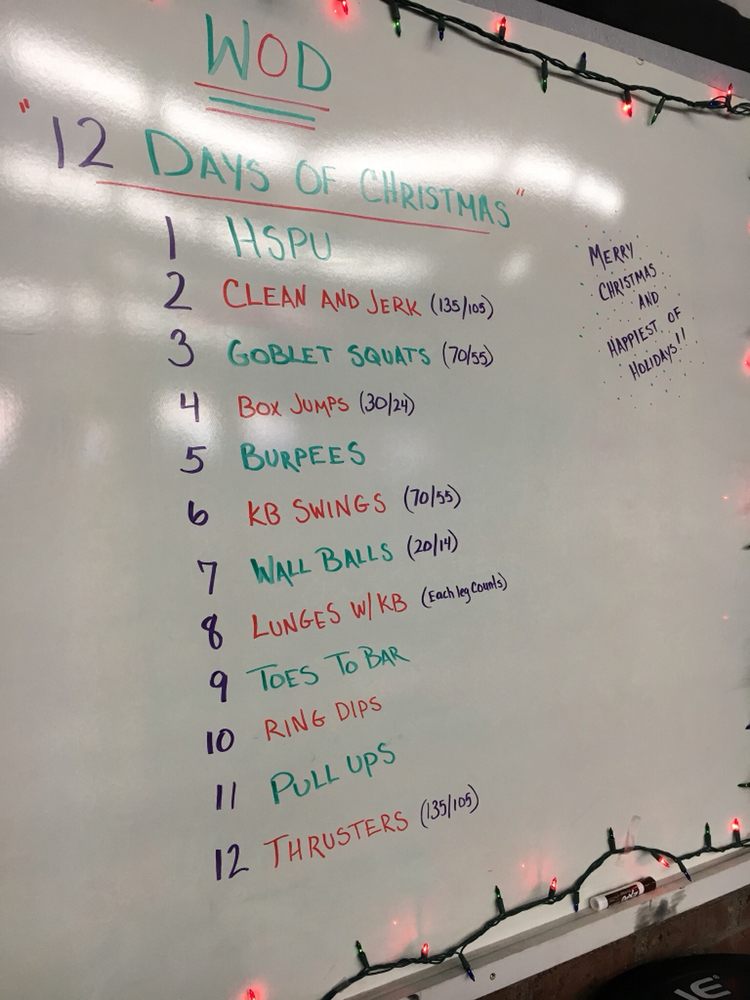 WOD
"12 DAYS OF CHRISTMAS"
1 HSPU
2 CLEAN AND JERK (135/105)
3 GOBLET SQUATS (70/55)
4 BOX JUMPS (30/24)
5 BURPEES
6 KB SWINGS (70/55)
7 WALL BALLS (20/14)
8 LUNGES W/KB (Each leg counts)
9 TOES TO BAR
10 RING DIPS
11 PULL UPS
12 THRUSTERS (135/105)
MERRY
CHRISTMAS
AND
HAPPIEST OF
HOLIDAYS!!